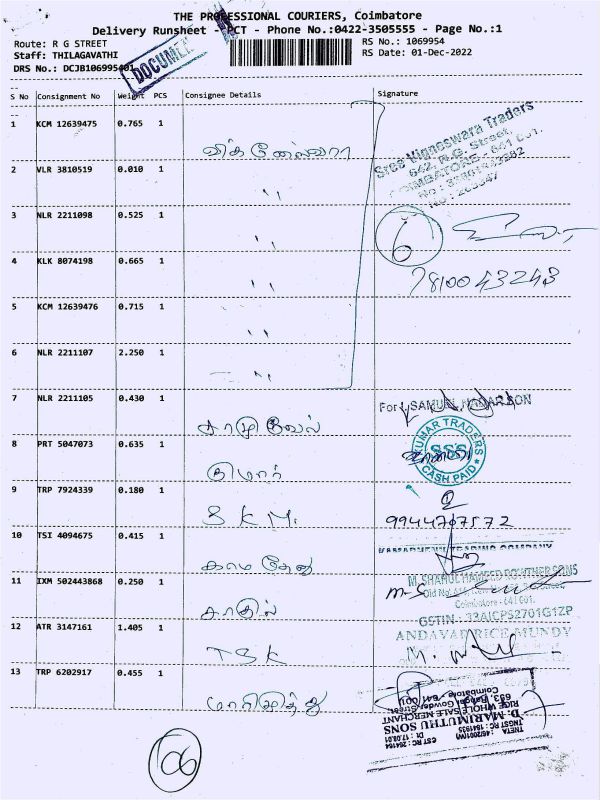 THE PROFESSIONAL COURIERS, Coimbatore
Delivery Runsheet - PCT - Phone No.:0422-3505555 - Page No.:1
Route: R G STREET
RS No.: 1069954
Staff: THILAGAVATHI
RS Date: 01-Dec-2022
DRS No.: DCJB106995401
DOCUMENT
S No Consignment No Weight PCS Consignee Details Signature
1 KCM 12639475 0.765 1
Sree Vigneswara Traders
642, R.G. Street,
COIMBATORE - 641 001.
2 VLR 3810519 0.010 1 "
3 NLR 2211098 0.525 1 "
6
4 KLK 8074198 0.665 1 "
7810043243
5 KCM 12639476 0.715 1 "
6 NLR 2211107 2.250 1 "
7 NLR 2211105 0.430 1
For SAMUEL NADARSON
சாமுவேல்
KUMAR TRADERS
SSS
CASH PAID
8 PRT 5047073 0.635 1
குமார்
9 TRP 7924339 0.180 1 S K M.
9944767572
10 TSI 4094675 0.415 1
KAMADHENU TRADING COMPANY
காமதேனு
11 IXM 502443868 0.250 1
M. SHAHUL HAMEED ROWTHER SONS
Coimbatore - 641 001.
GSTIN : 33AICPS2701G1ZP
12 ATR 3147161 1.405 1 TSK
ANDAVAR RICE MUNDY
13 TRP 6202917 0.455 1
மாரிமுத்து
D. MARIMUTHU SONS
RICE WHOLESALE MERCHANT
683, Rangai Gowder Street,
Coimbatore - 641 001
06